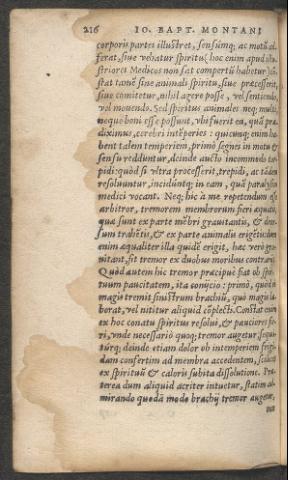 216 IO. BAPT. MONTANI
corporis partes illustret, sensumq; ac motũ af
ferat, siue vehatur spiritu (hoc enim apud
striores Medicos non sat compertũ habetur)
stat tamẽ sine animali spiritu, siue præcesserit,
siue comitetur, nihil agere posse, vel sentiendo,
vel mouendo. Sed spiritus animales neq; multi,
neque boni esse possunt, vbi fuerit ea, quã præ
diximus, cerebri intẽperies: quicunq; enim ha
bent talem temperiem, primò segnes in motu &
sensu redduntur, deinde aucto incommodo tor
pidi: quòd si vltra processerit, trepidi, ac tãdem
resoluuntur, inciduntq; in eam, quã paralysim
medici vocant. Neq; hic à me repetendum esse
arbitror, tremorem membrorum fieri æquato,
quæ sunt ex parte mẽbri grauitantis, & deor
sum trahẽtis, & ex parte animalis erigẽtis:
enim æqualiter illa quidẽ erigit, hæc verò gra
uitant, fit tremor ex duobus motibus contrarijs.
Quòd autem hic tremor præcipuè fiat ob spiri
tuum paucitatem, ita conijcio: primò, quoniã
magis tremit sinistrum brachiũ, quò magis la
borat, vel nititur aliquid cõplecti. Constat enim
ex hoc conatu spiritus resolui, & pauciores fie
ri, vnde necessariò quoq; tremor augetur,
tũrq; deinde etiam dolor ob intemperiem frigi
dam confertim ad membra accedentem,
ex spirituũ & caloris subita dissolutione. Præ
terea dum aliquid acriter intuetur, statim ad
mirando quodã modo brachij tremor augetur,